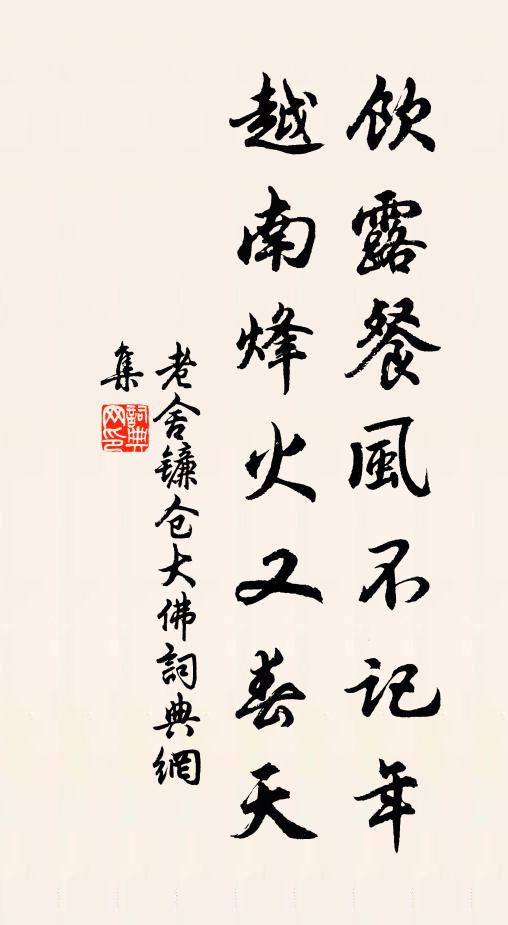 飲露餐風不記年
越南烽火又春天
老舍鐮仓大佛詞典網
集
詞典
网印